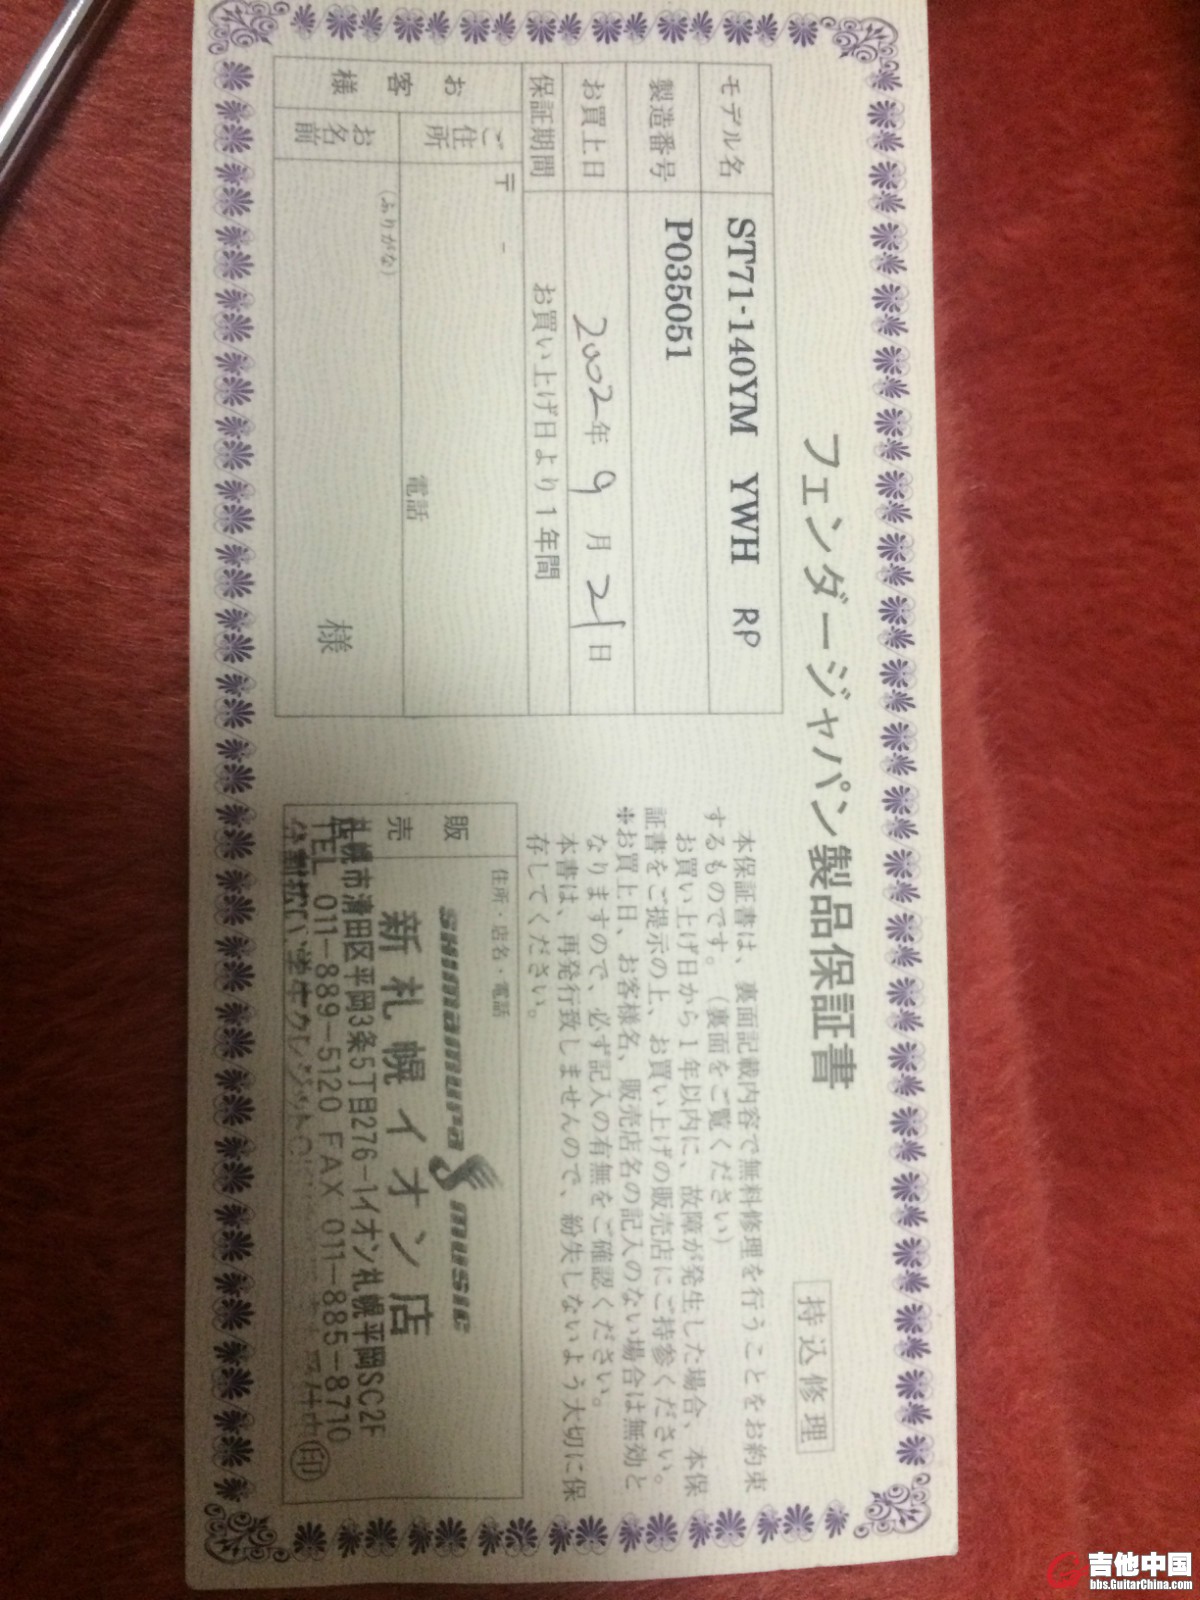 フェンダージャパン製品保証書
持込修理
モデル名 ST71-140YM YWH RP
製造番号 P035051
お買上日 2002年 9月 21日
保証期間 お買い上げ日より1年間
お客様
ご住所 〒 -
電話
お名前 (ふりがな)
様
本保証書は、裏面記載内容で無料修理を行うことをお約束
するものです。(裏面をご覧ください)
お買い上げ日から1年以内に、故障が発生した場合、本保
証書をご提示の上、お買い上げの販売店にご持参ください。
※お買上日、お客様名、販売店名の記入のない場合は無効と
なりますので、必ず記入の有無をご確認ください。
本書は、再発行致しませんので、紛失しないよう大切に保
存してください。
販売店
住所・店名・電話
shimamura music
新札幌イオン店
札幌市清田区平岡3条5丁目276-1イオン札幌平岡SC2F
TEL 011-889-5120 FAX 011-885-8710
印
吉他中国
bbs.GuitarChina.com